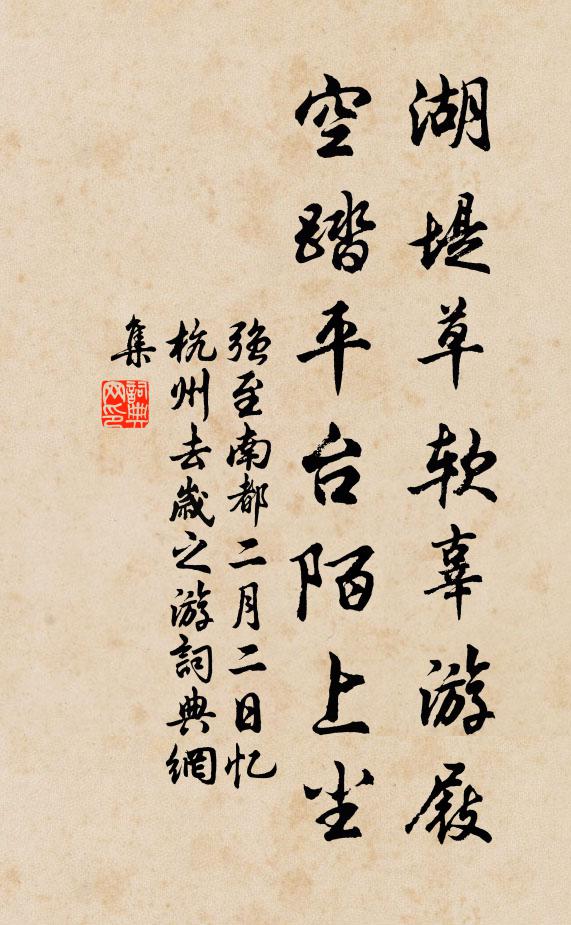 湖堤草软辜游屐
空踏平台陌上尘
强至南都二月二日忆
杭州去歲之游詞典網
集
詞典
网印